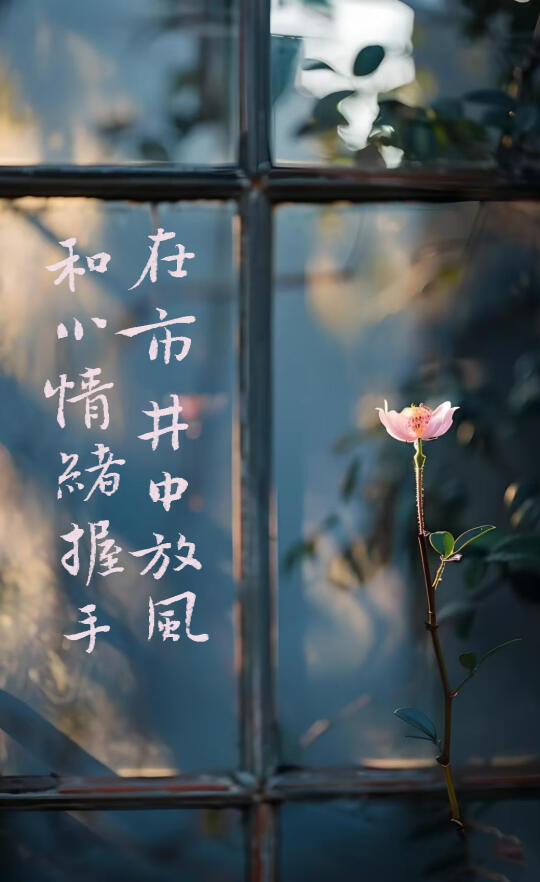 在市井中放風
和小情緒握手